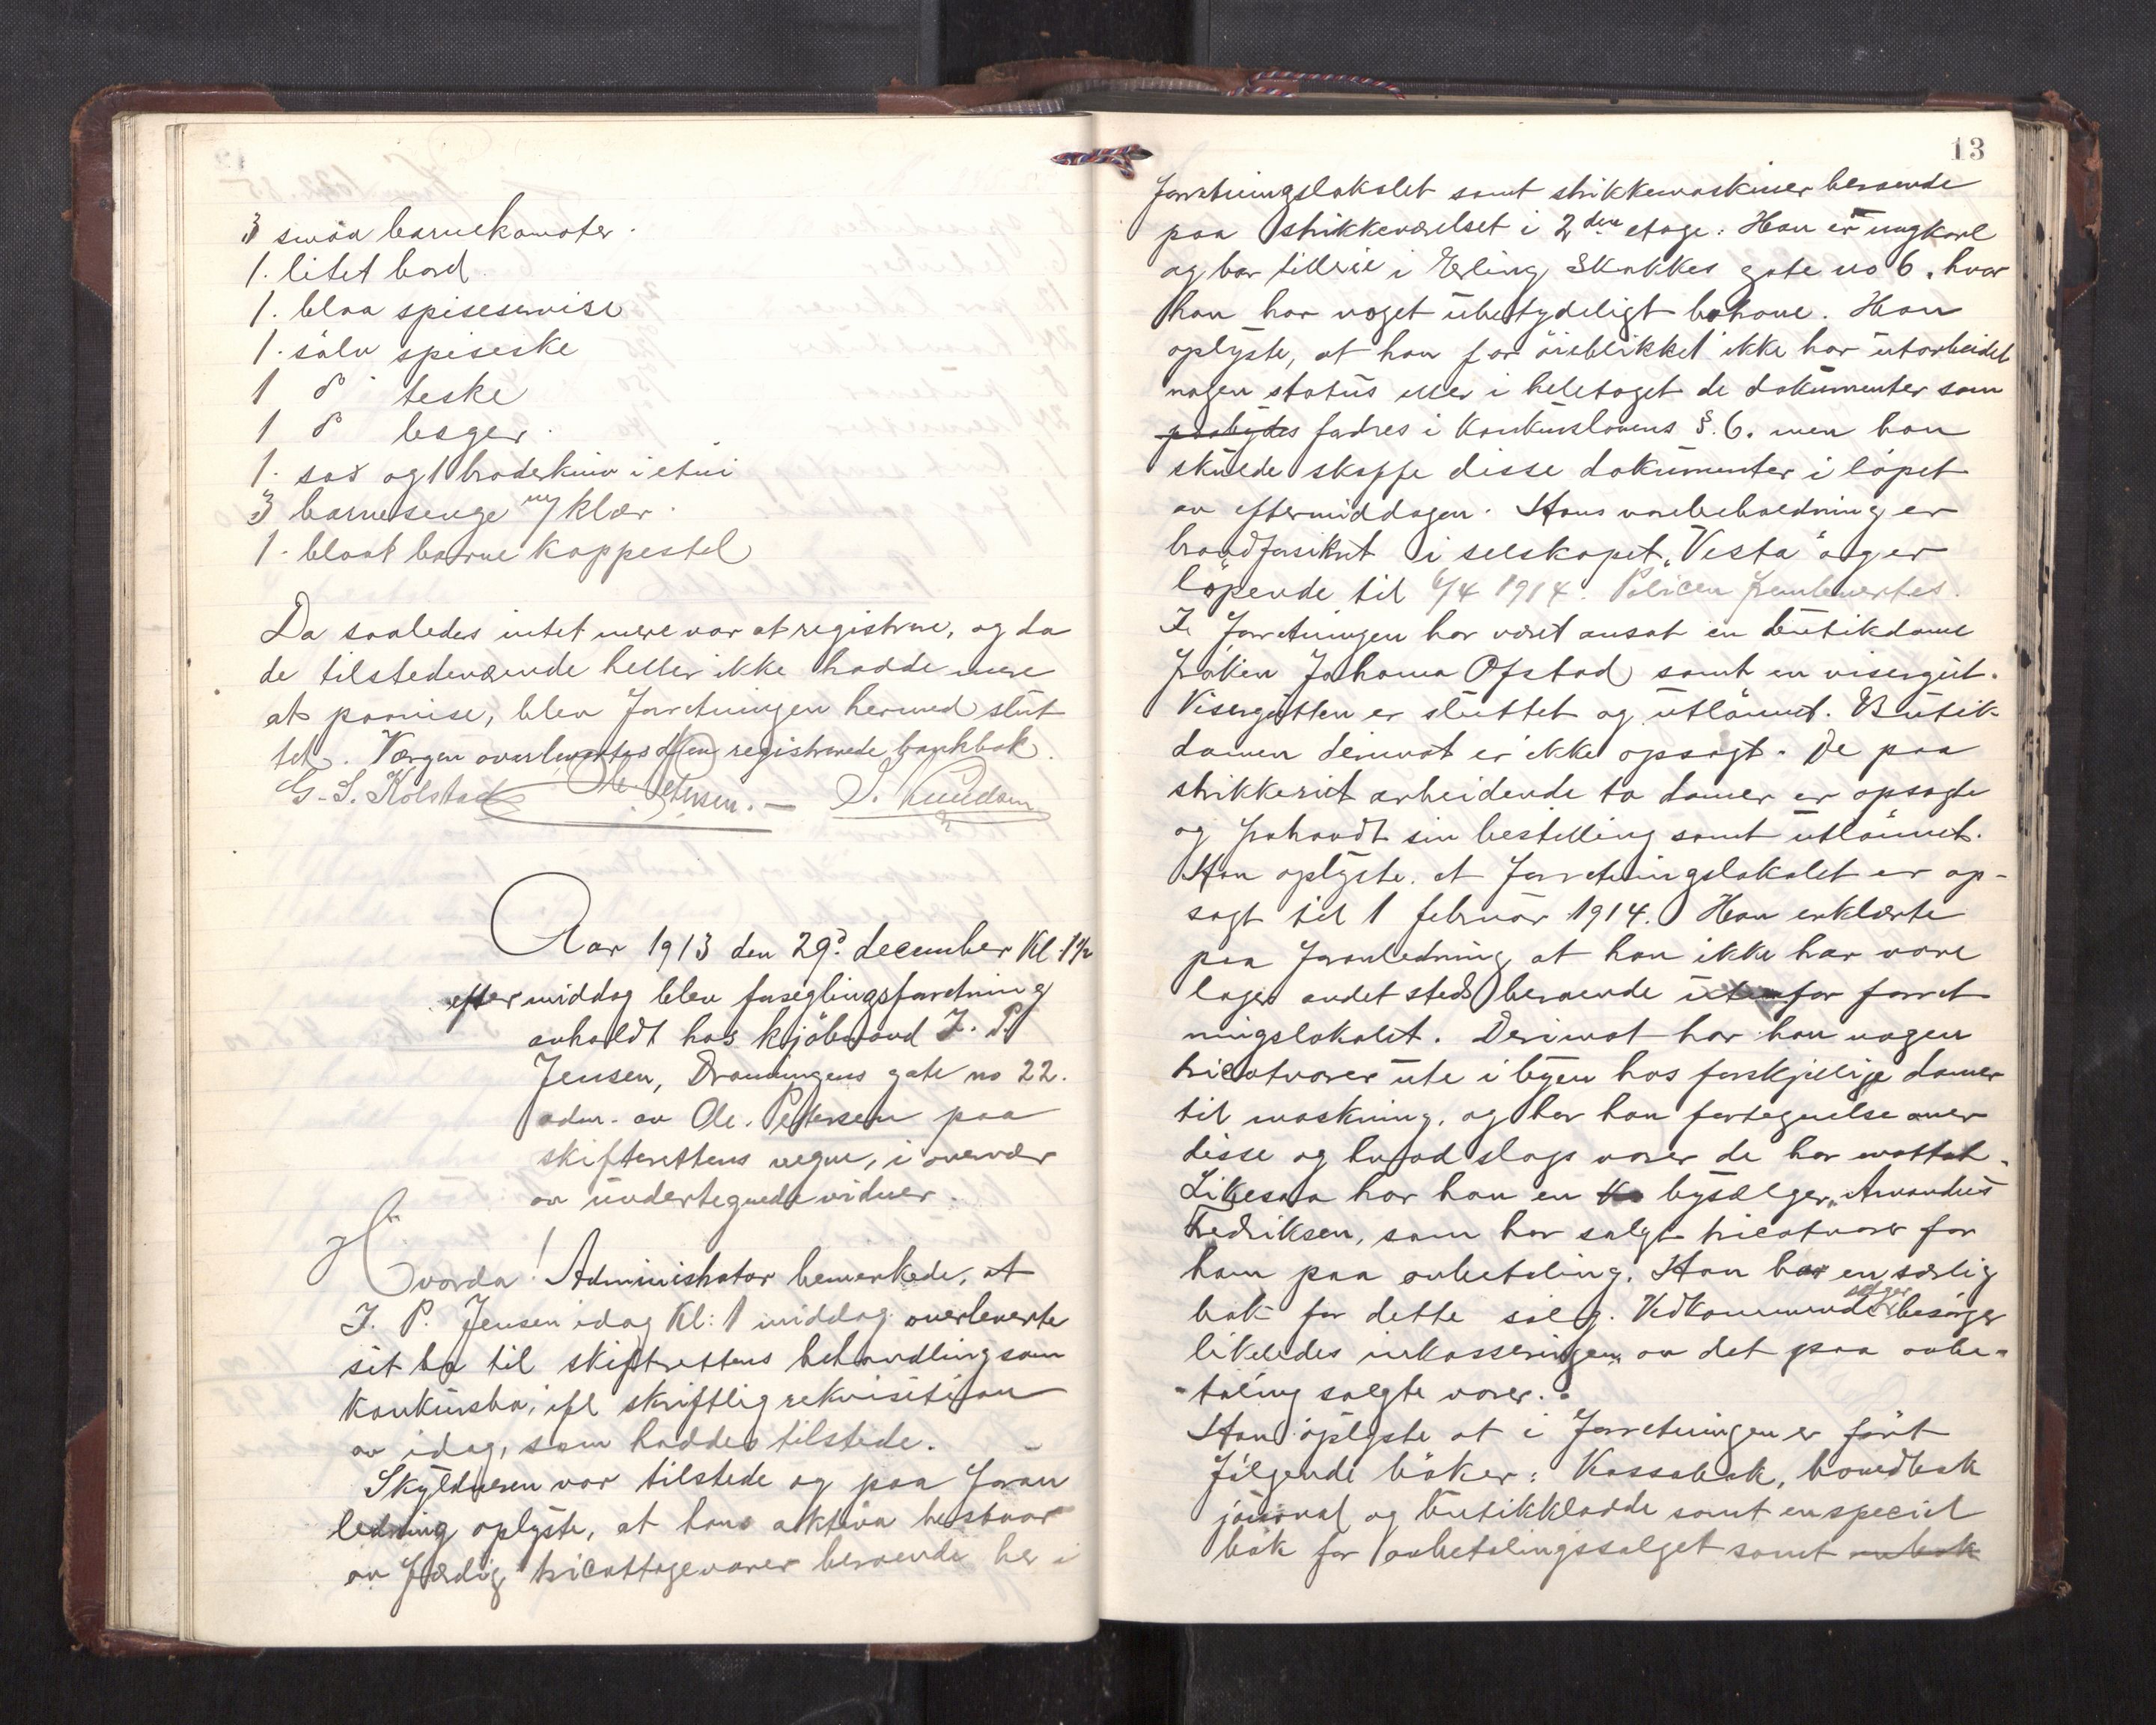 3 smaa barnekomoter.
1. litet bord.
1. blaa spiseservise
1. sölv spiseske
1 do teske
1 do beger.
1. sax og 1 broderkniv i etui
3 barnesenge m/ klær.
1. blaat barne koppestel
Da saaledes intet mere var at registrere, og da
de tilstedeværende heller ikke hadde mere
at paavise, blev forretningen hermed slut
tet. Værgen overlevertes den registrerede bankbok.
G. S. Kolstad Ole Petersen. — S. Knudsen
Aar 1913 den 29de december Kl. 1½
eftermiddag blev forseglingsforretning
avholdt hos kjöbmand J. P.
Jensen, Dronningens gate no 22.
adm. av Ole. Petersen paa
skifterettens vegne, i overvær
av undertegnede vidner.
Hvorda! Administrator bemerkede, at
J. P. Jensen idag Kl: 1 middag overleverte
sit bo til skifterettens behandling som
konkursbo, ifl skriftlig rekvisition
av idag, som haddes tilstede. –
Skyldneren var tilstede og paa foran
ledning oplyste, at hans aktiva bestaar
av færdig tricottagevarer beroende her i
13
forretningslokalet samt strikkemaskiner beroende
paa strikkeværelset i 2den etage. Han er ungkarl
og bor tilleie i Erling Skakkes gate no 6, hvor
han har noget ubetydeligt bohave. Han
oplyste, at han for öieblikket ikke har utarbeidet
nogen status eller i heletaget de dokumenter som
paabydes fodres i Konkurslovens §. 6. men han
skulde skaffe disse dokumenter i löpet
av eftermiddagen. Hans varebeholdning er
brandforsikret i selskapet "Vesta" og er
löpende til 6/4 1914. Policen fremlevertes.
I forretningen har været ansat en butikdame
fröken Johanna Ofstad samt en visergut.
Visergutten er sluttet og utlönnet. Butik-
damen derimot er ikke opsagt. De paa
strikkeriet arbeidende to damer er opsagte
og frahaandt sin bestilling samt utlönnet.
Han oplyste, at forretningslokalet er op-
sagt til 1 februar 1914. Han erklærte
paa foranledning at han ikke har vare
lager andet sted beroende utenfor forret
ningslokalet. Derimot har han nogen
tricotvarer ute i byen hos forskjellige damer
til maskning, og har han fortegnelse over
disse og hvad slags varer de har mottat.
Likesaa har han en bysælger, Amandus
Fredriksen, som har solgt tricotvarer for
ham paa avbetaling. Han har en særlig
bok for dette salg. Vedkommende sælger besörger
likeledes inkasseringen av det paa avbe-
-taling solgte varer.
Han oplyste at i forretningen er fört
fölgende böker: Kassabok, hovedbok
journal og butikkladde samt en speciel
bok for avbetalingssalget samt en bok